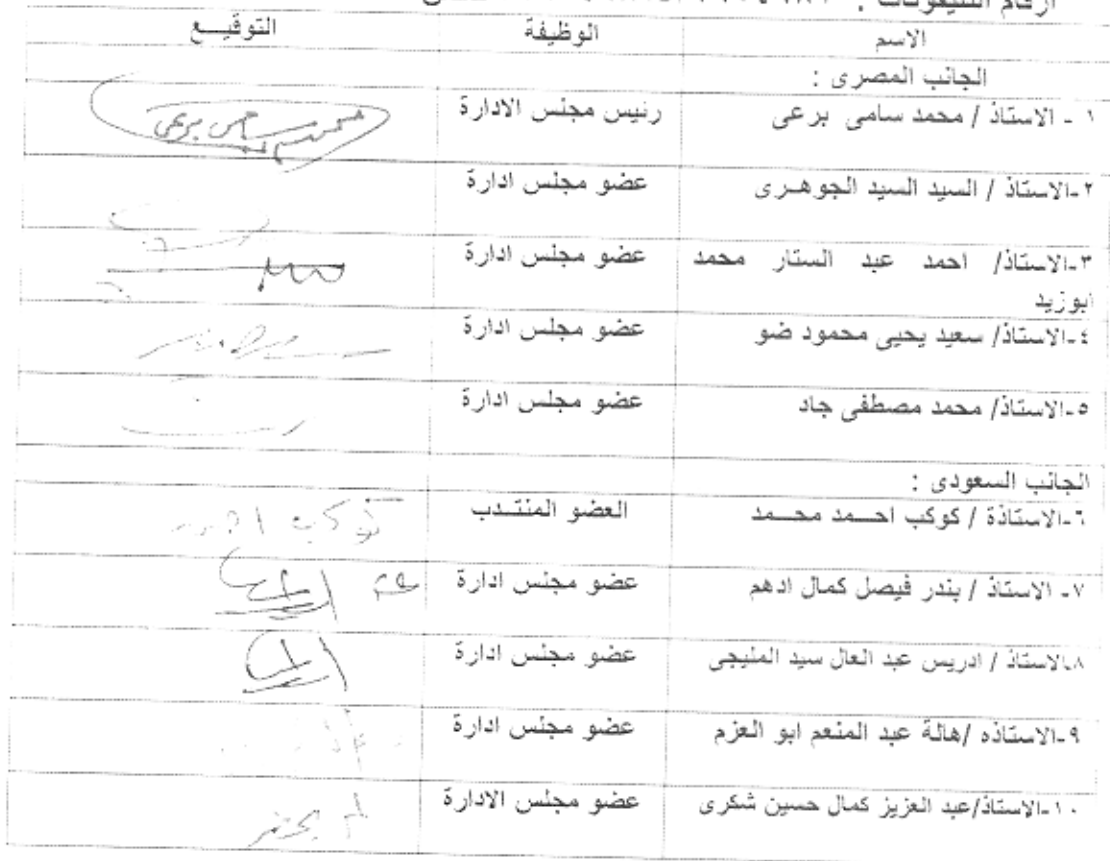 ارقام التليفونات :
الاسم الوظيفة التوقيـــع
الجانب المصرى :
١ - الاستاذ / محمد سامى برعى رئيس مجلس الادارة محمد سامى برعى
٢-الاستاذ / السيد السيد الجوهـرى عضو مجلس ادارة
٣-الاستاذ/ احمد عبد الستار محمد عضو مجلس ادارة
ابوزيد
٤-الاستاذ/ سعيد يحيى محمود ضو عضو مجلس ادارة
٥-الاستاذ/ محمد مصطفى جاد عضو مجلس ادارة
الجانب السعودى :
٦-الاستاذة / كوكب احـــمد محـــمد العضو المنتـدب كوكب احمد
٧- الاستاذ / بندر فيصل كمال ادهم عضو مجلس ادارة
٨-الاستاذ / ادريس عبد العال سيد المليجى عضو مجلس ادارة
٩-الاستاذه /هالة عبد المنعم ابو العزم عضو مجلس ادارة
١٠-الاستاذ/عبد العزيز كمال حسين شكرى عضو مجلس الادارة